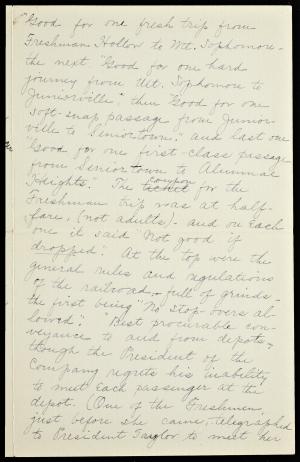 "Good for one fresh trip from
Freshman Hollow to Mt. Sophomore -
the next "Good for one hard
journey from Mt. Sophomore to
Juniorville", then "Good for one
soft-snap passage from Junior-
ville to Seniortown," and last one
"Good for one first-class passage
from Seniortown to Alumnae
Heights." The ticket coupon for the
Freshman trip was at half-
fare, (not adults) - and on each
one it said "Not good if
dropped". At the top were the
general rules and regulations
of the railroad - full of grinds -
the first being "No stop-overs al-
lowed". "Best procurable con-
veyance to and from depots,
though the President of the
Company regrets his inability
to meet each passenger at the
depot. (One of the Freshmen,
just before she came, telegraphed
to President Taylor to meet her